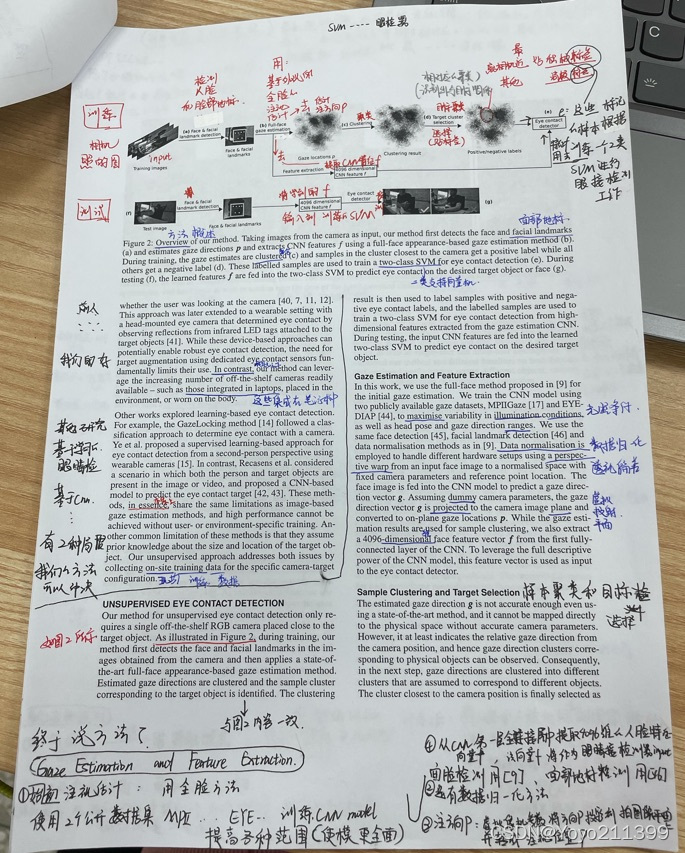 SVM ---- 眼检器
检测
人脸
和脸部地标
用:
全脸
训练
相机
照的图
input
聚类
目标聚类
选择
最
其他
提取CNN特征 f
SVM进行
眼接检测
工作
测试
(a) Face & facial landmark detection
Face & facial landmarks
(b) Full-face gaze estimation
(c) Clustering
(d) Target cluster selection
(e) Eye contact detector
Training images
Gaze locations p
Clustering result
Positive/negative labels
Feature extraction
4096 dimensional CNN feature f
(f)
Test image
Face & facial landmark detection
Face & facial landmarks
4096 dimensional CNN feature f
Eye contact detector
(g)
方法概述
面部地标
Figure 2: Overview of our method. Taking images from the camera as input, our method first detects the face and facial landmarks
(a) and estimates gaze directions p and extracts CNN features f using a full-face appearance-based gaze estimation method (b).
During training, the gaze estimates are clustered (c) and samples in the cluster closest to the camera get a positive label while all
others get a negative label (d). These labelled samples are used to train a two-class SVM for eye contact detection (e). During
testing (f), the learned features f are fed into the two-class SVM to predict eye contact on the desired target object or face (g).
二类支持向量机
whether the user was looking at the camera [40, 7, 11, 12].
This approach was later extended to a wearable setting with
a head-mounted eye camera that determined eye contact by
observing reflections from infrared LED tags attached to the
target objects [41]. While these device-based approaches can
potentially enable robust eye contact detection, the need for
target augmentation using dedicated eye contact sensors fun-
damentally limits their use. In contrast, our method can lever-
age the increasing number of off-the-shelf cameras readily
available – such as those integrated in laptops, placed in the
environment, or worn on the body.
这些集成在笔记本中
Other works explored learning-based eye contact detection.
For example, the GazeLocking method [14] followed a clas-
sification approach to determine eye contact with a camera.
Ye et al. proposed a supervised learning-based approach for
eye contact detection from a second-person perspective using
wearable cameras [15]. In contrast, Recasens et al. considered
a scenario in which both the person and target objects are
present in the image or video, and proposed a CNN-based
model to predict the eye contact target [42, 43]. These meth-
ods, in essence, share the same limitations as image-based
gaze estimation methods, and high performance cannot be
achieved without user- or environment-specific training. An-
other common limitation of these methods is that they assume
prior knowledge about the size and location of the target ob-
ject. Our unsupervised approach addresses both issues by
collecting on-site training data for the specific camera-target
configuration.
现场 训练 数据
其他研究
基于学习
眼睛检
基于CNN.
有2种局限
我们的方法
可以解决
UNSUPERVISED EYE CONTACT DETECTION
Our method for unsupervised eye contact detection only re-
quires a single off-the-shelf RGB camera placed close to the
target object. As illustrated in Figure 2, during training, our
method first detects the face and facial landmarks in the im-
ages obtained from the camera and then applies a state-of-
the-art full-face appearance-based gaze estimation method.
Estimated gaze directions are clustered and the sample cluster
corresponding to the target object is identified. The clustering
如图2所示
与图2内容一致.
result is then used to label samples with positive and nega-
tive eye contact labels, and the labelled samples are used to
train a two-class SVM for eye contact detection from high-
dimensional features extracted from the gaze estimation CNN.
During testing, the input CNN features are fed into the learned
two-class SVM to predict eye contact on the desired target
object.
Gaze Estimation and Feature Extraction
In this work, we use the full-face method proposed in [9] for
the initial gaze estimation. We train the CNN model using
two publicly available gaze datasets, MPIIGaze [17] and EYE-
DIAP [44], to maximise variability in illumination conditions,
as well as head pose and gaze direction ranges. We use the
same face detection [45], facial landmark detection [46] and
data normalisation methods as in [9]. Data normalisation is
employed to handle different hardware setups using a perspec-
tive warp from an input face image to a normalised space with
fixed camera parameters and reference point location. The
face image is fed into the CNN model to predict a gaze di-
rection vector g. Assuming dummy camera parameters, the gaze
direction vector g is projected to the camera image plane and
converted to on-plane gaze locations p. While the gaze esti-
mation results are used for sample clustering, we also extract
a 4096-dimensional face feature vector f from the first fully-
connected layer of the CNN. To leverage the full descriptive
power of the CNN model, this feature vector is used as input
to the eye contact detector.
光照条件
数据归一化
虚拟
投射
平面
Sample Clustering and Target Selection
样本聚类和目标
选择
The estimated gaze direction g is not accurate enough even us-
ing a state-of-the-art method, and it cannot be mapped directly
to the physical space without accurate camera parameters.
However, it at least indicates the relative gaze direction from
the camera position, and hence gaze direction clusters corre-
sponding to physical objects can be observed. Consequently,
in the next step, gaze directions are clustered into different
clusters that are assumed to correspond to different objects.
The cluster closest to the camera position is finally selected as
终于说方法了
Gaze Estimation and Feature Extraction.
①初始注视估计: 用全脸方法
使用2个公开数据集 MPII... EYE... 训练CNN model
提高各种范围(使模更全面)
面脸检测用[9], 面部地标检测用[46]
还有数据归一化方法
CSDN@yoyo211399